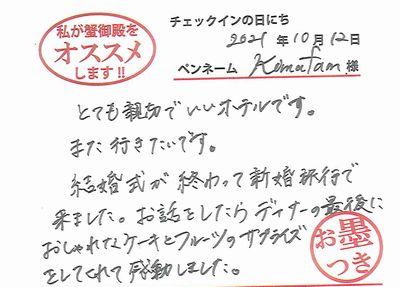 私が蟹御殿を
オススメ
します!!
チェックインの日にち
2021年10月12日
ペンネーム Komafam 様
とても親切でいいホテルです。
また行きたいです。
結婚式が終わって新婚旅行で
来ました。お話をしたらディナーの最後に
おしゃれなケーキとフルーツのサプライズ
をしてくれて感動しました。
お墨つき